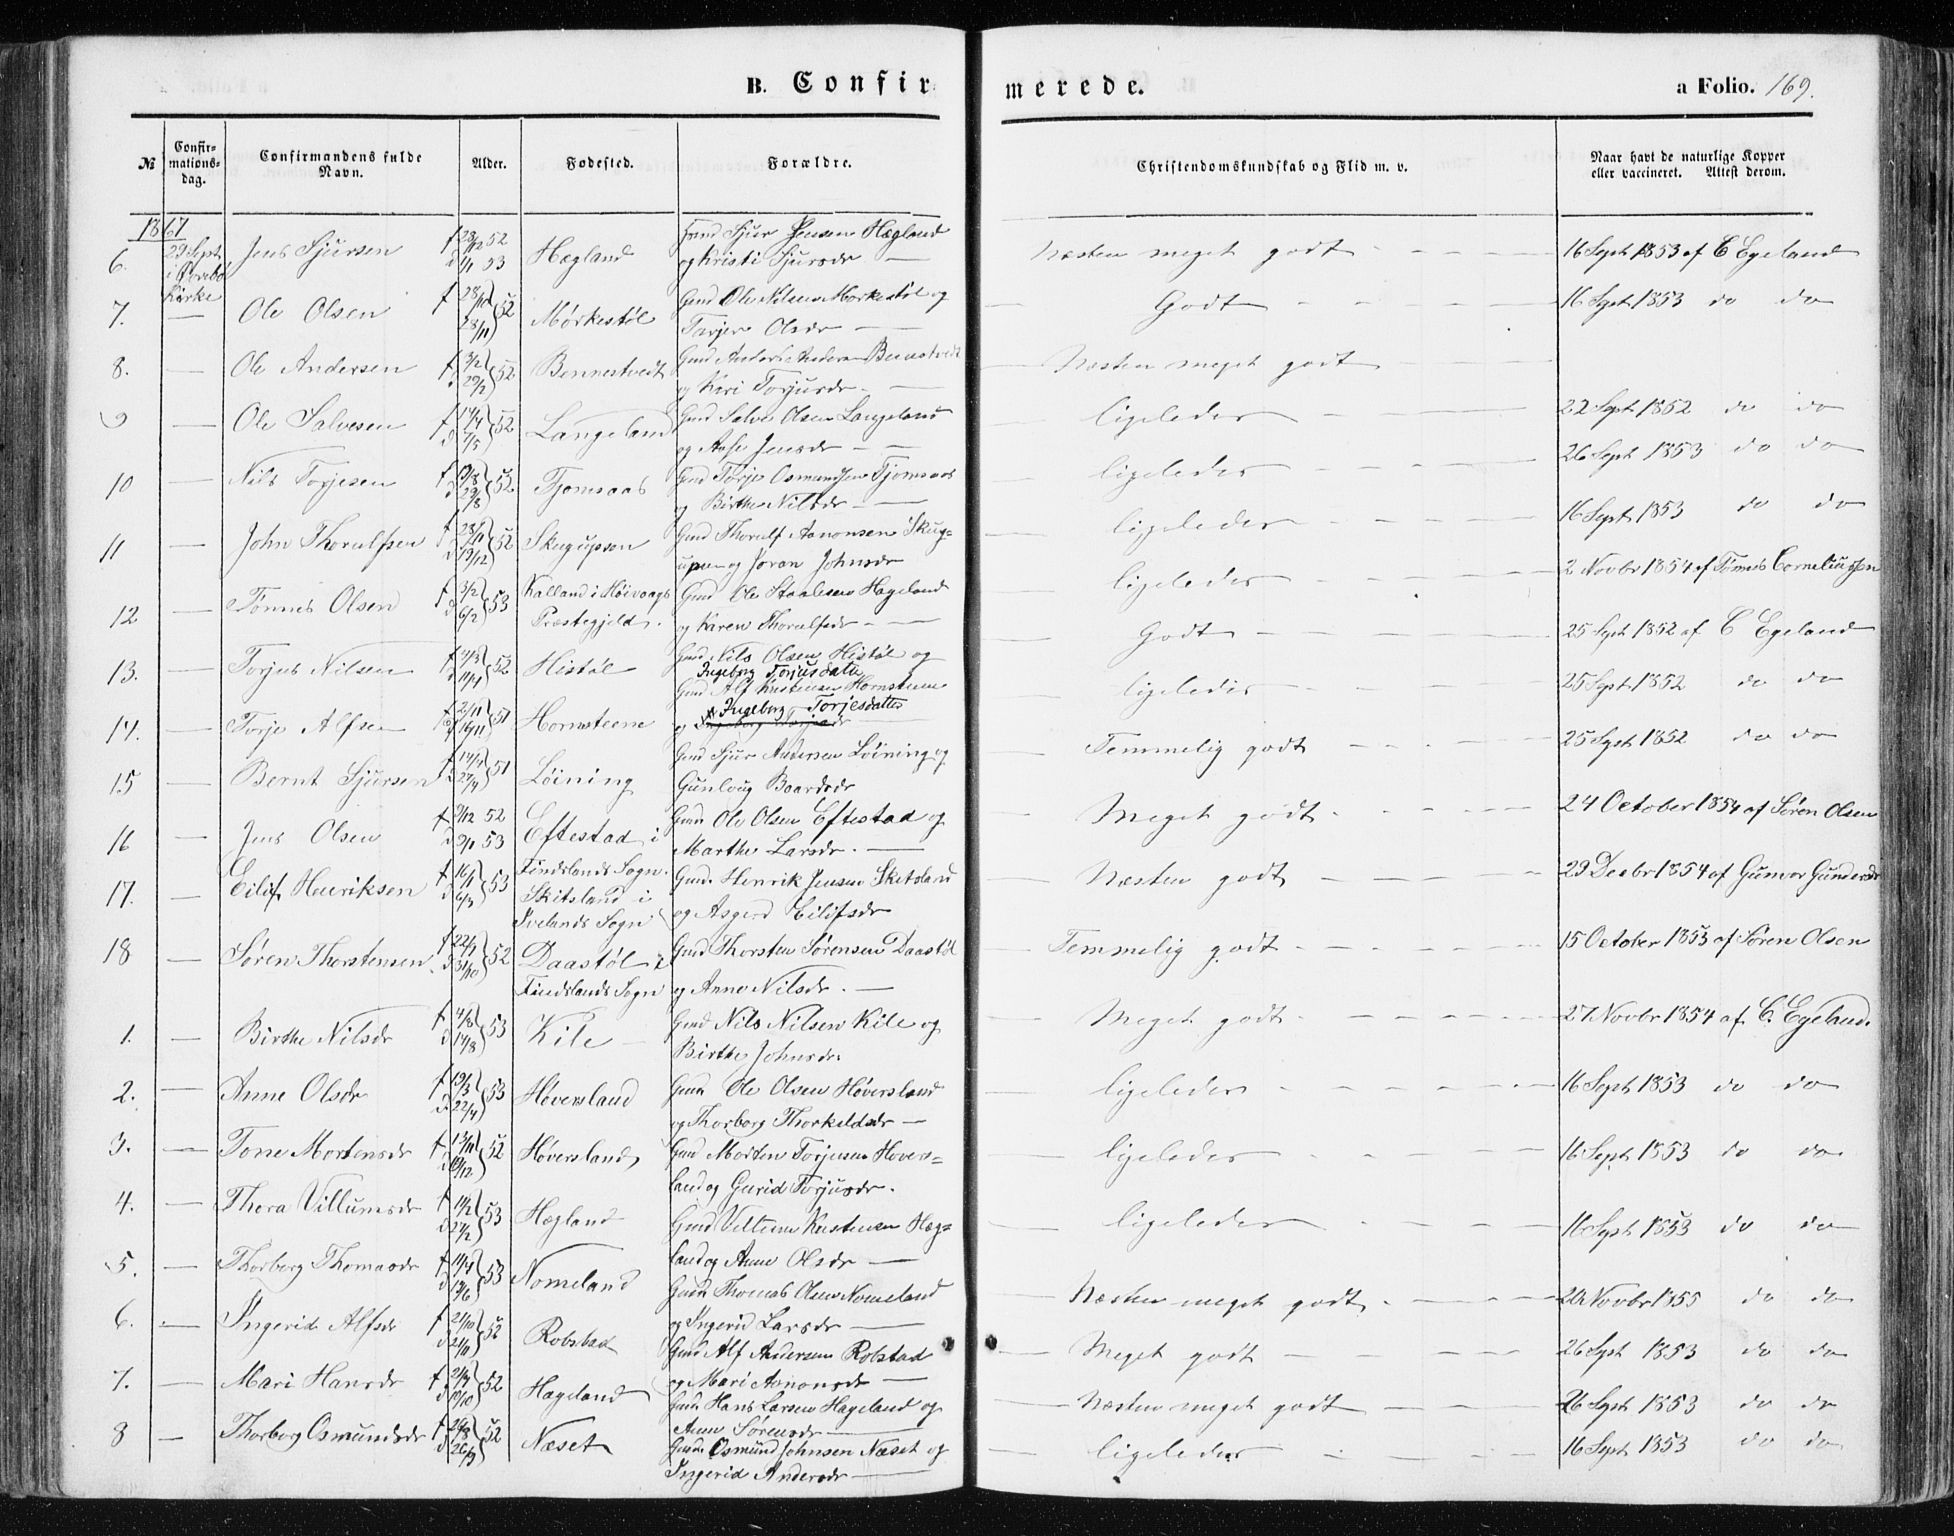 B. Confirmerede. a Folio. 169.
№ Confirmationsdag. Confirmandens fulde Navn. Alder. Fødested. Forældre. Christendomskundskab og Flid m. v. Naar havt de naturlige Kopper eller vaccineret. Attest derom.
1867
6. 29 Sept i Kirke Jens Sjursen f 28/12 52 d 1/1 53 Hægland Gmd Sjur Jensen Hægland og Kristi Sjursdr — Næsten meget godt 16 Sept 1853 af C Egeland
7. — Ole Olsen 52 Mørkestøl Gmd Ole Nilsen Mørkestøl og Olsdr — Godt 16 Sept 1853 do do
8. — Ole Andersen f 3/2 d 29/2 52 Bennestvedt Gmd Anders Andersen Bennestvedt og Kari Torjusdr — Næsten meget godt
9 — Ole Salvesen f 14/4 d 7/5 52 Langeland Gmd Salve Olsen Langeland og Aase Jensdr — ligeledes 22 Sept 1852 do do
10 — Nils Torjesen d 29/8 52 Tjomsaas Gmd Torje Osmundsen Tjomsaas og Birthe Nilsdr — ligeledes 26 Sept 1853 do do
11 — John Thorulfsen d 19/12 52 Skugupson Gmd Thorulf Aanonsen Skugupson og Joran Johnsdr ligeledes 16 Sept 1853 do do
12 Tønnes Olsen f 3/2 d 6/2 53 Kalland i Høivaags Præstegjeld. Gmd Ole Staalesen Hageland og Karen Thorulfsdr — ligeledes 2 Novbr 1854 af Tønnes Corneliussen
13. — Torjus Nilsen 52 Histøl Gmd Nils Olsen Histøl og Ingeborg Torjusdatter Godt 25 Sept 1852 af C Egeland
14. — Torje Alfsen f 2/11 d 16/11 51 Hornsteene Gmd Alf Kristensen Hornsteene og Ingeborg Torjesdatter ligeledes 25 Sept 1852 do do
15 — Bernt Sjursen 51 Løining Gmd Sjur Andersen Løining og Gunloug Baardsdr Temmelig godt 25 Sept 1852 do do
16 — Jens Olsen f 9/12 52 d 9/1 53 Eftestad i Findslands Sogn. Gmd Ole Olsen Eftestad og Marthe Larsdr. — Meget godt 24 October 1854 af Søren Olsen
17. — Eilif Henriksen f 16/1 d 6/3 53 Skitsland i Ivelands Sogn Gmd. Henrik Jensen Sketsland og Asgerd Eilifsdr Næsten godt 29 Decbr 1854 af Gunvor Gundersdr
18 — Søren Thorstensen f 22/9 d 31/10 52 Daastøl i Findslands Sogn Gmd Thorsten Sørensen Daastøl og Anne Nilsdr. — Temmelig godt 15 October 1853 af Søren Olsen
1. — Birthe Nilsdr f 4/8 d 14/8 53 Kile Gmd Nils Nilsen Kile og Birthe Johnsdr. Meget godt 27 Novbr 1854 af C. Egeland.
2. — Anne Olsdr f 19/3 d 22/4 53 Høversland Gmd Ole Olsen Høversland og Thorborg Thorkeldsdr — ligeledes 16 Sept 1853 do do
3. — Tone Mortensdr f 13/11 d 19/12 52 Høversland Gmd Morten Torjusen Høversland og Gurid Torjusdr. ligeledes 16 Sept 1853 do do
4. — Thora Villumsdr f 11/2 d 27/2 53 Hægland Gmd Villum Kristensen Hægland og Anne Olsdr — ligeledes 16 Sept 1853 do do
5. — Thorborg Thomasdr f 14/4 53 Nomeland Gmd Thomas Olsen Nomeland og Ingerid Larsdr — Næsten meget godt Novbr 1855 do do
6. — Ingerid Alfsdr f 21/10 d 21/11 52 Robstad Gmd Alf Andersen Robstad og Mari Aanonsdr — Meget godt 26 Sept 1853 do do
7. — Mari Hansdr f 21/9 d 10/10 52 Hageland Gmd Hans Larsen Hageland og Anne Sørensdr — Næsten meget godt 26 Sept 1853 do do
8 — Thorborg Osmundsdr f 29/8 d 26/9 52 Næset Gmd. Osmund Johnsen Næset og Ingerid Andersdr — ligeledes 16 Sept 1853 do do